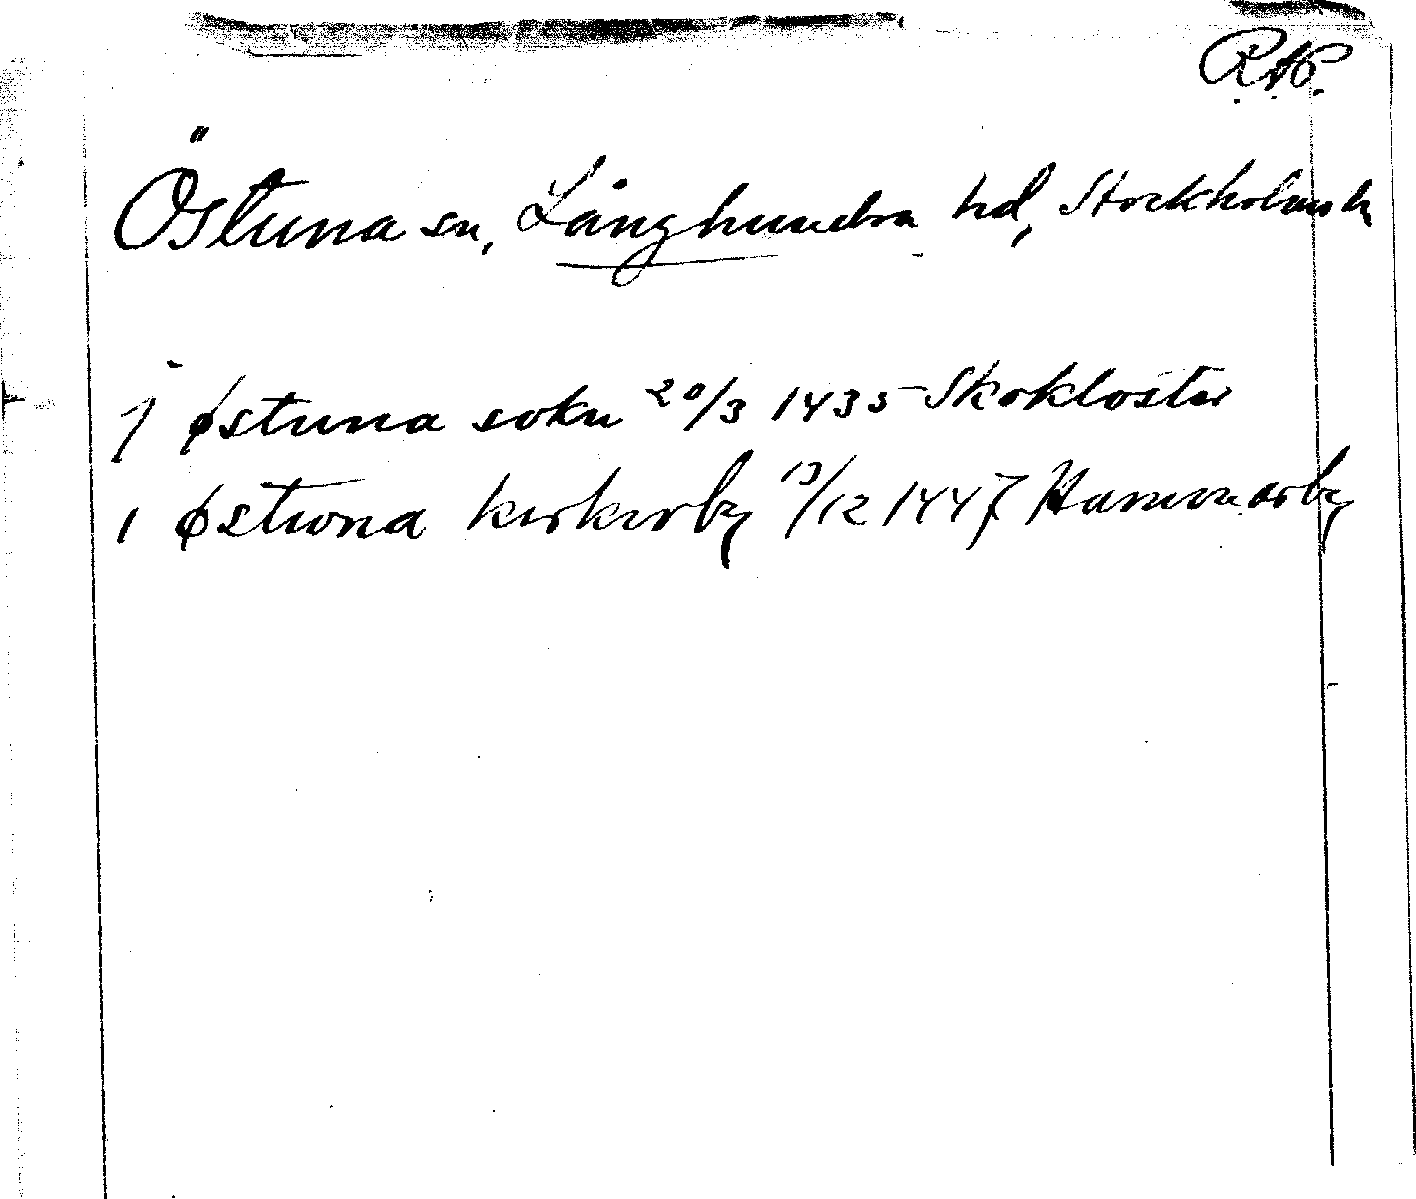 R.A.P.
Östuna sn, Långhundra hd, Stockholms l.
J østuna sokn 20/3 1435 Skokloster
i østwna kirkirby 13/12 1447 Hammarby